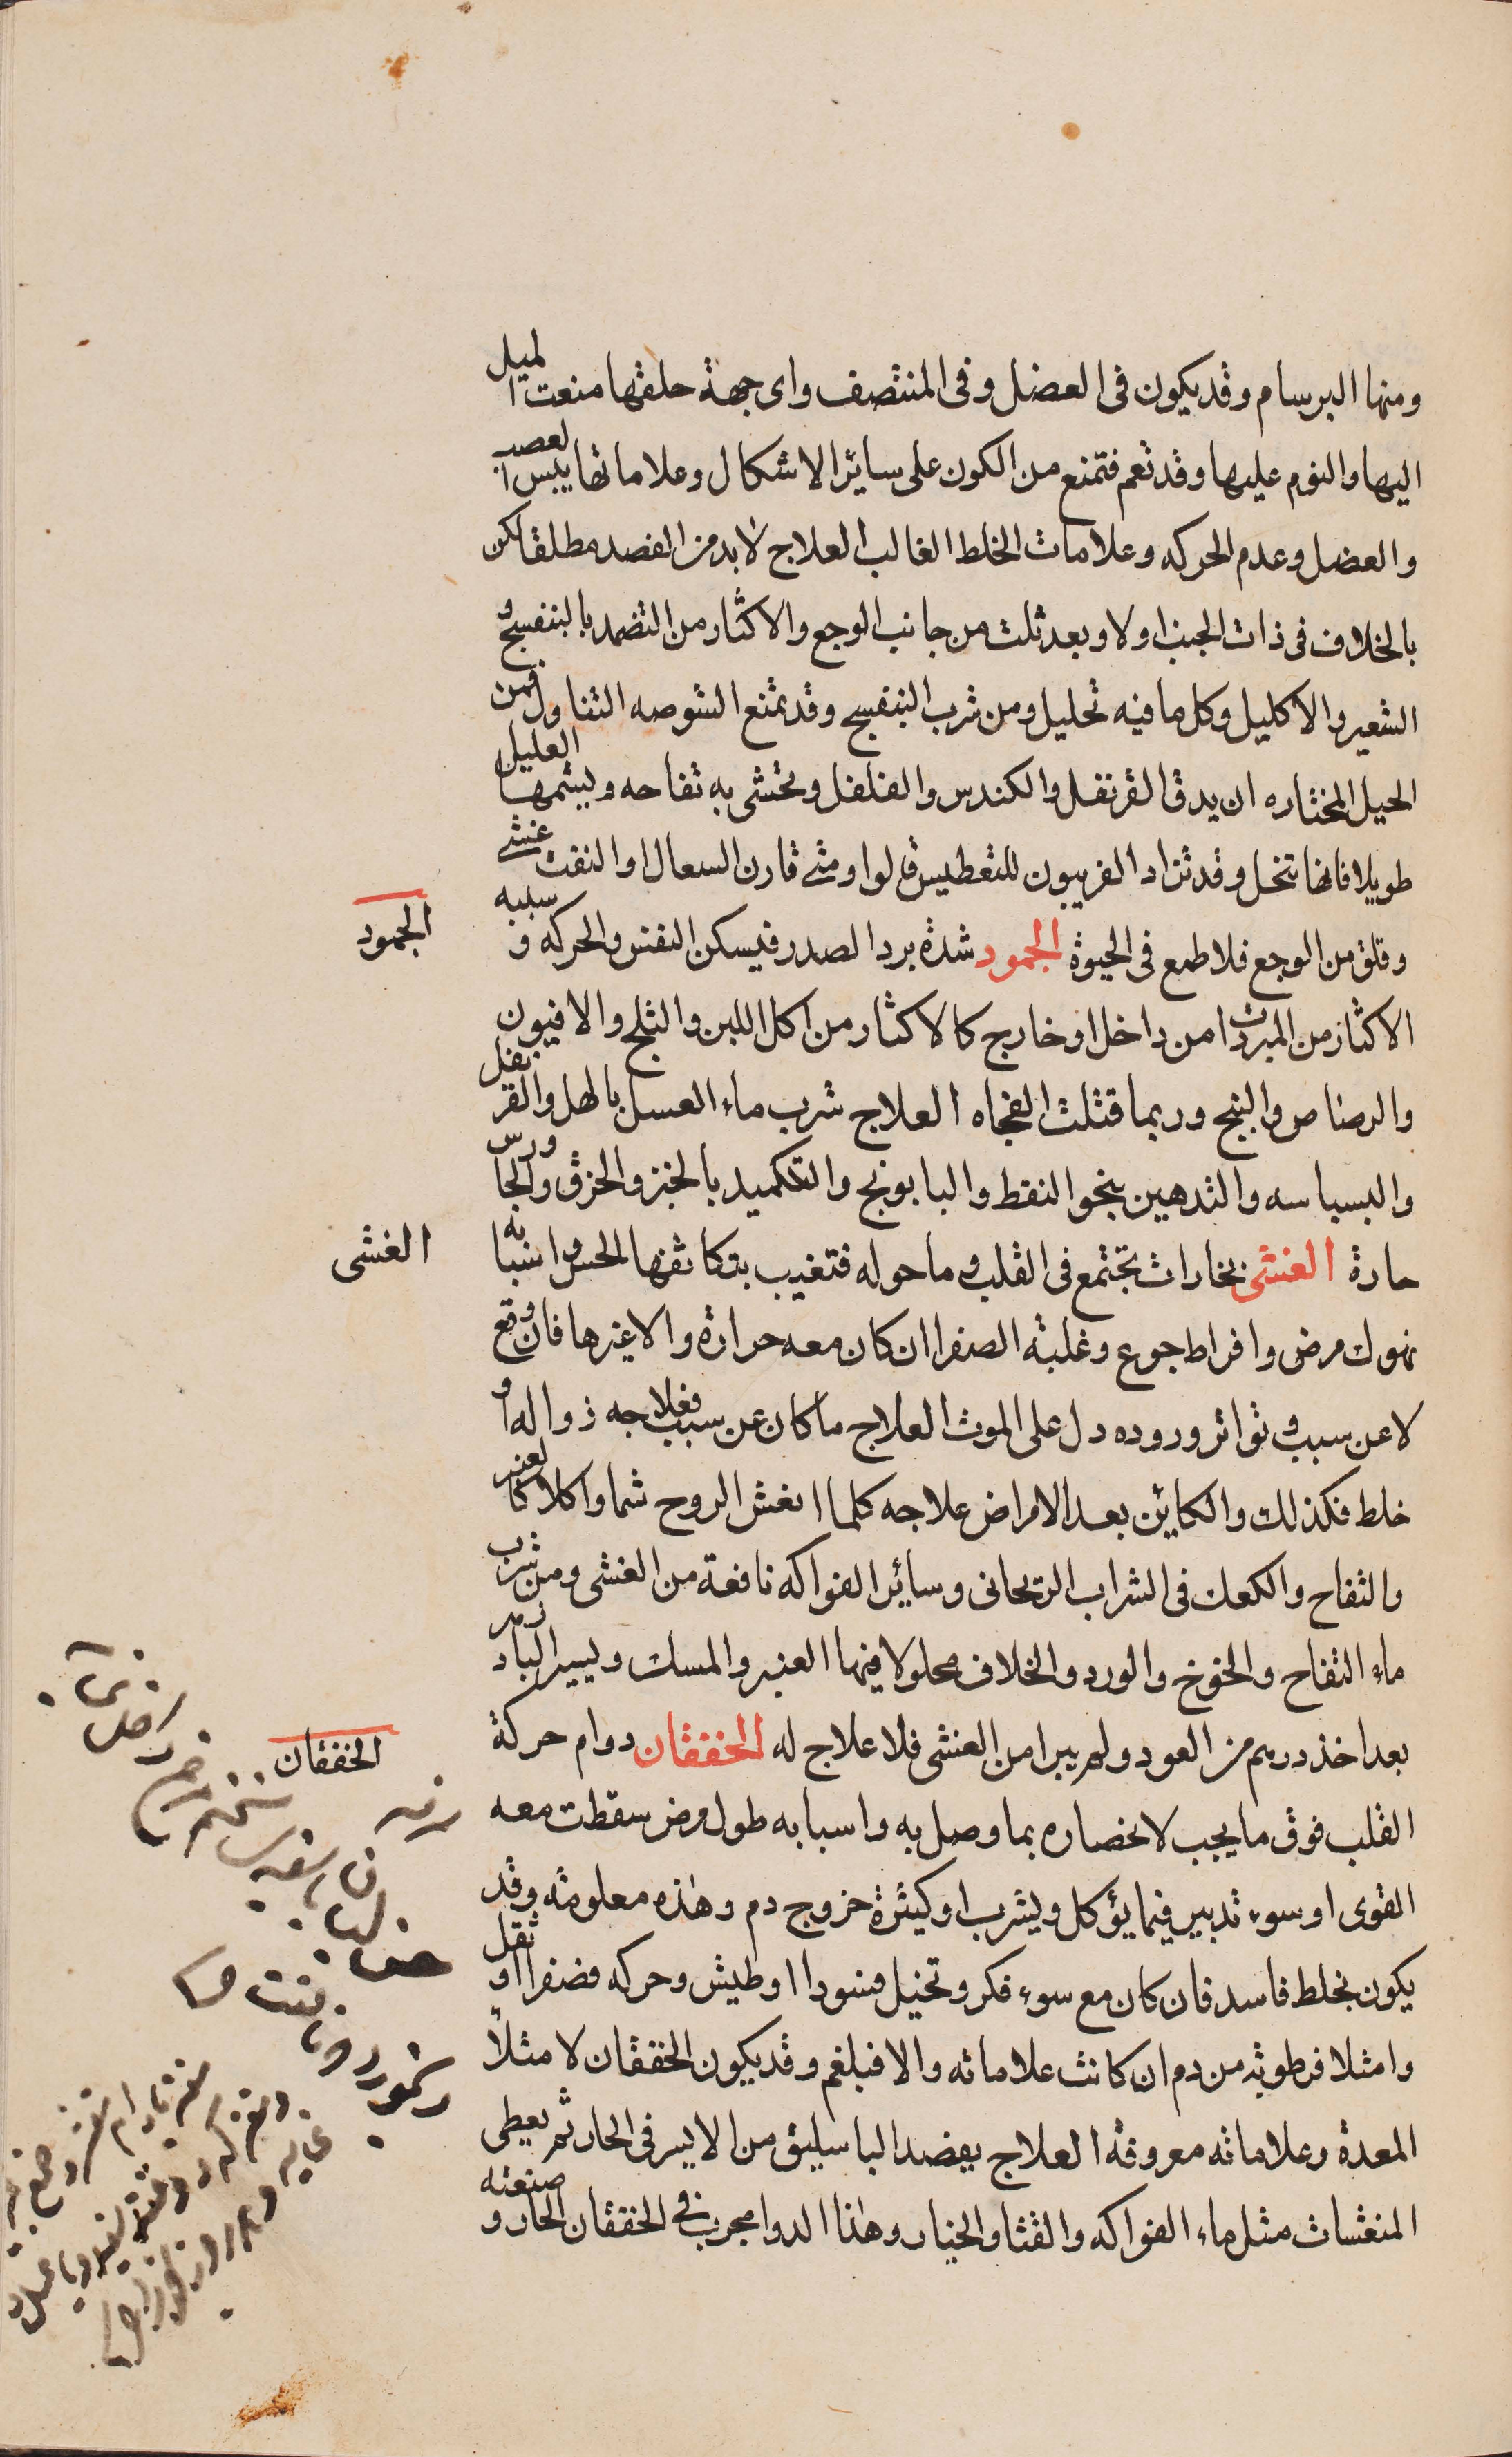 ومنها البرسام وقد يكون فى العضل وفى المنتصف واى جهة حلقها منعت الميل
اليها والنوم عليها وقد تعم فتمنع من الكون على سائر الاشكال وعلاماتها يبس العصب
والعضل وعدم الحركه وعلامات الخلط الغالب العلاج لا بد من الفصد مطلقا لكن
بالخلاف فى ذات الجنب اولا وبعد ثلث من جانب الوجع والاكثار من التضمد بالبنفسج و
الشعير والاكليل وكل ما فيه تحليل ومن شرب البنفسج وقد تمنع الشوصه التناول فمن
الحيل المختاره ان يدق القرنفل والكندس والفلفل وتحشى به تفاحه ويشمها العليل
طويلا فانها تنحل وقد تزاد الفربيون للتعطيس قالوا ومتى قارن السعال او النفث غشى
وقلق من الوجع فلا طمع فى الحيوة الجمود شدة برد الصدر فيسكن النفس والحركه وسببه
الجمود
الاكثار من المبردات من داخل او خارج كالاكثار من اكل اللبن والثلج والافيون
والرصاص والبنج وربما قتلت الفجاه العلاج شرب ماء العسل بالهل والقرنفل
والبسباسه والتدهين بنحو النفط والبابونج والتكميد بالخبز والخرق والجاورس
حارة الغشى بخارات تجتمع فى القلب وما حوله فتغيب بتكاثفها الحس واسبابه
الغشى
نهوك مرض وافراط جوع وغلبة الصفرا ان كان معه حرارة والا غيرها فان وقع
لا عن سبب وتواتر وروده دل على الموت العلاج ما كان عن سبب فعلاجه زواله او
خلط فكذلك والكاين بعد الامراض علاجه كلما انعش الروح شما واكلا كالعنبر
والتفاح والكعك فى الشراب الريحانى وسائر الفواكه نافعة من الغشى ومن شرب
ماء التفاح والخوخ والورد والخلاف محلولا فيها العنبر والمسك ويسير البادزهر
بعد اخذ درهم من العود ولم يبرا من الغشى فلا علاج له الخفقان دوام حركة
الخفقان
القلب فوق ما يجب لانحصاره بما وصل به واسبابه طول مرض سقطت معه
القوى او سوء تدبير فيما يؤكل ويشرب او كثرة خروج دم وهذه معلومة وقد
يكون بخلط فاسد فان كان مع سوء فكر وتخيل فسودا او طيش وحركه فصفرا او ثقل
وامثلا فرطوبة من دم ان كانت علاماته والا فبلغم وقد يكون الخفقان لامثلا
المعدة وعلاماته معروفه العلاج يفصد الباسليق من الايسر فى الحار ثم يعطى
المنعشات مثل ماء الفواكه والقثا والخيار وهذا الدوا مجرب فى الخفقان الحار وصنعته